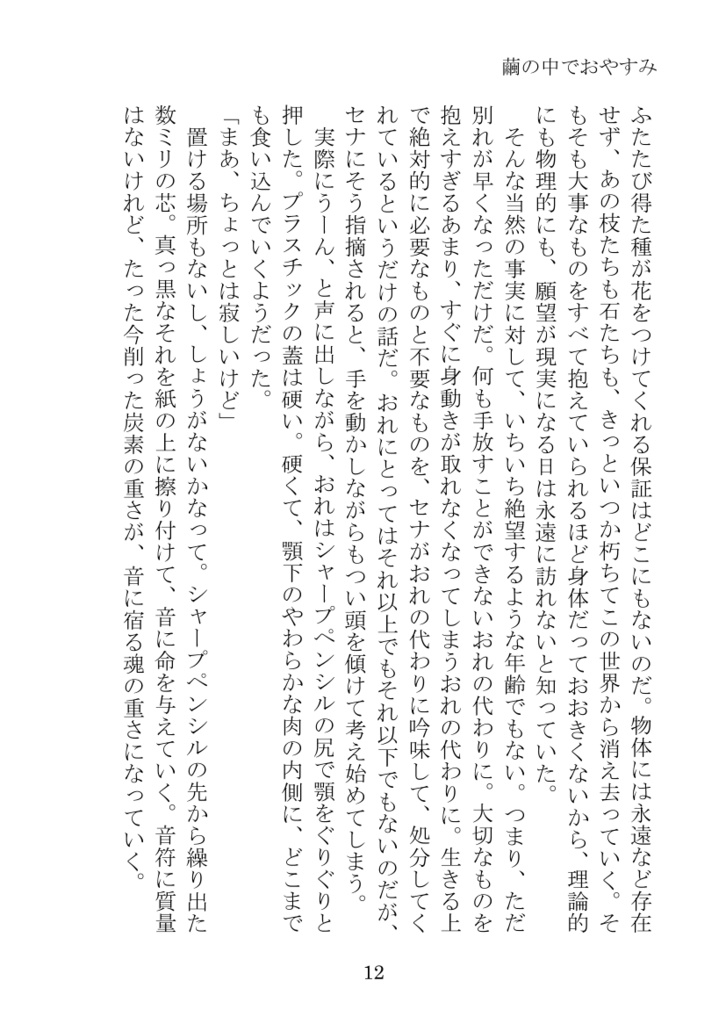 繭の中でおやすみ
ふたたび得た種が花をつけてくれる保証はどこにもないのだ。物体には永遠など存在
せず、あの枝たちも石たちも、きっといつか朽ちてこの世界から消え去っていく。そ
もそも大事なものをすべて抱えていられるほど身体だっておおきくないから、理論的
にも物理的にも、願望が現実になる日は永遠に訪れないと知っていた。
　そんな当然の事実に対して、いちいち絶望するような年齢でもない。つまり、ただ
別れが早くなっただけだ。何も手放すことができないおれの代わりに。大切なものを
抱えすぎるあまり、すぐに身動きが取れなくなってしまうおれの代わりに。生きる上
で絶対的に必要なものと不要なものを、セナがおれの代わりに吟味して、処分してく
れているというだけの話だ。おれにとってはそれ以上でもそれ以下でもないのだが、
セナにそう指摘されると、手を動かしながらもつい頭を傾けて考え始めてしまう。
　実際にうーん、と声に出しながら、おれはシャープペンシルの尻で顎をぐりぐりと
押した。プラスチックの蓋は硬い。硬くて、顎下のやわらかな肉の内側に、どこまで
も食い込んでいくようだった。
「まあ、ちょっとは寂しいけど」
　置ける場所もないし、しょうがないかなって。シャープペンシルの先から繰り出た
数ミリの芯。真っ黒なそれを紙の上に擦り付けて、音に命を与えていく。音符に質量
はないけれど、たった今削った炭素の重さが、音に宿る魂の重さになっていく。
12